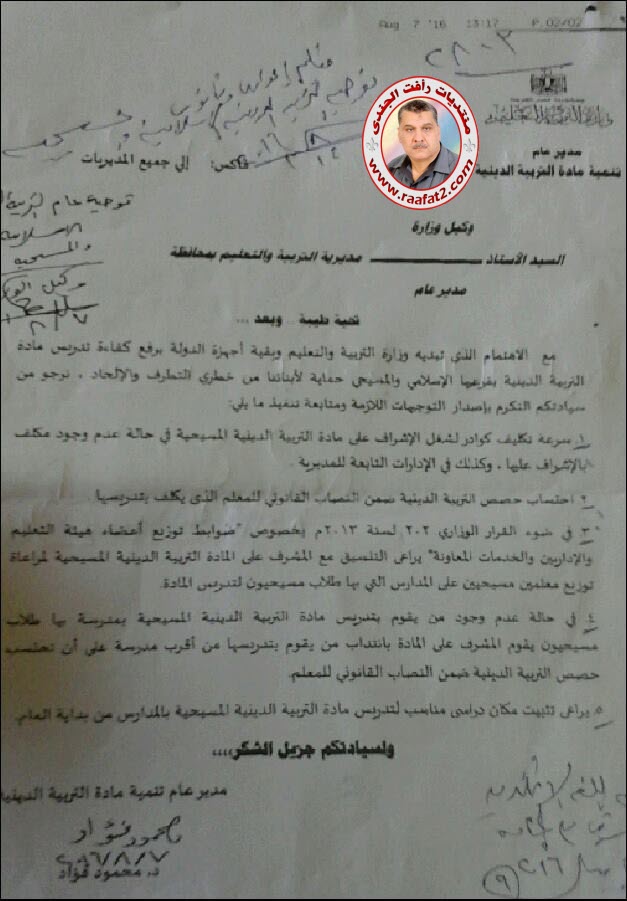 Aug 7 '16 15:17 P. 02/02
٢٨٠٣
منتديات رأفت الجندى
www.raafat2.com
وزارة التربية والتعليم
مدير عام
تنمية مادة التربية الدينية
فاكس: إلي جميع المديريات
توجيه عام لتربية
الاسلامية
والمسيحية
وكيل
٨/٧
وكيل وزارة
السيد الأستاذ مديرية التربية والتعليم بمحافظة
مدير عام
تحية طيبة .. وبعد ...
مع الاهتمام الذي تبديه وزارة التربية والتعليم وبقية أجهزة الدولة برفع كفاءة تدريس مادة
التربية الدينية بفرعيها الإسلامي والمسيحي حماية لأبنائنا من خطري التطرف والإلحاد ، نرجو من
سيادتكم التكرم بإصدار التوجيهات اللازمة ومتابعة تنفيذ ما يلي:
١ سرعة تكليف كوادر لشغل الإشراف على مادة التربية الدينية المسيحية في حالة عدم وجود مكلف
بالإشراف عليها ، وكذلك في الإدارات التابعة للمديرية .
٢ احتساب حصص التربية الدينية ضمن النصاب القانوني للمعلم الذى يكلف بتدريسها
٣ في ضوء القرار الوزاري ٢٠٢ لسنة ٢٠١٣م بخصوص "ضوابط توزيع أعضاء هيئة التعليم
والإداريين والخدمات المعاونة" يراعى التنسيق مع المشرف على المادة التربية الدينية المسيحية لمراعاة
توزيع معلمين مسيحيين على المدارس التي بها طلاب مسيحيون لتدريس المادة.
٤ في حالة عدم وجود من يقوم بتدريس مادة التربية الدينية المسيحية بمدرسة بها طلاب
مسيحيون يقوم المشرف على المادة بانتداب من يقوم بتدريسها من أقرب مدرسة على أن تحتسب
حصص التربية الدينية ضمن النصاب القانوني للمعلم.
٥ يراعى تثبيت مكان دراسى مناسب لتدريس مادة التربية الدينية المسيحية بالمدارس من بداية العام.
ولسيادتكم جزيل الشكر,,,,
مدير عام تنمية مادة التربية الدينية
محمود فؤاد
٢٠١٦/٨/٧
د. محمود فؤاد
٢٠١٦
٩